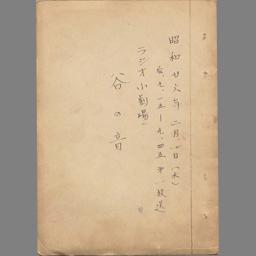 昭和廿六年二月、七日(水)
夜、九、一五ー九、四五 第一放送
ラジオ小劇場
谷の音